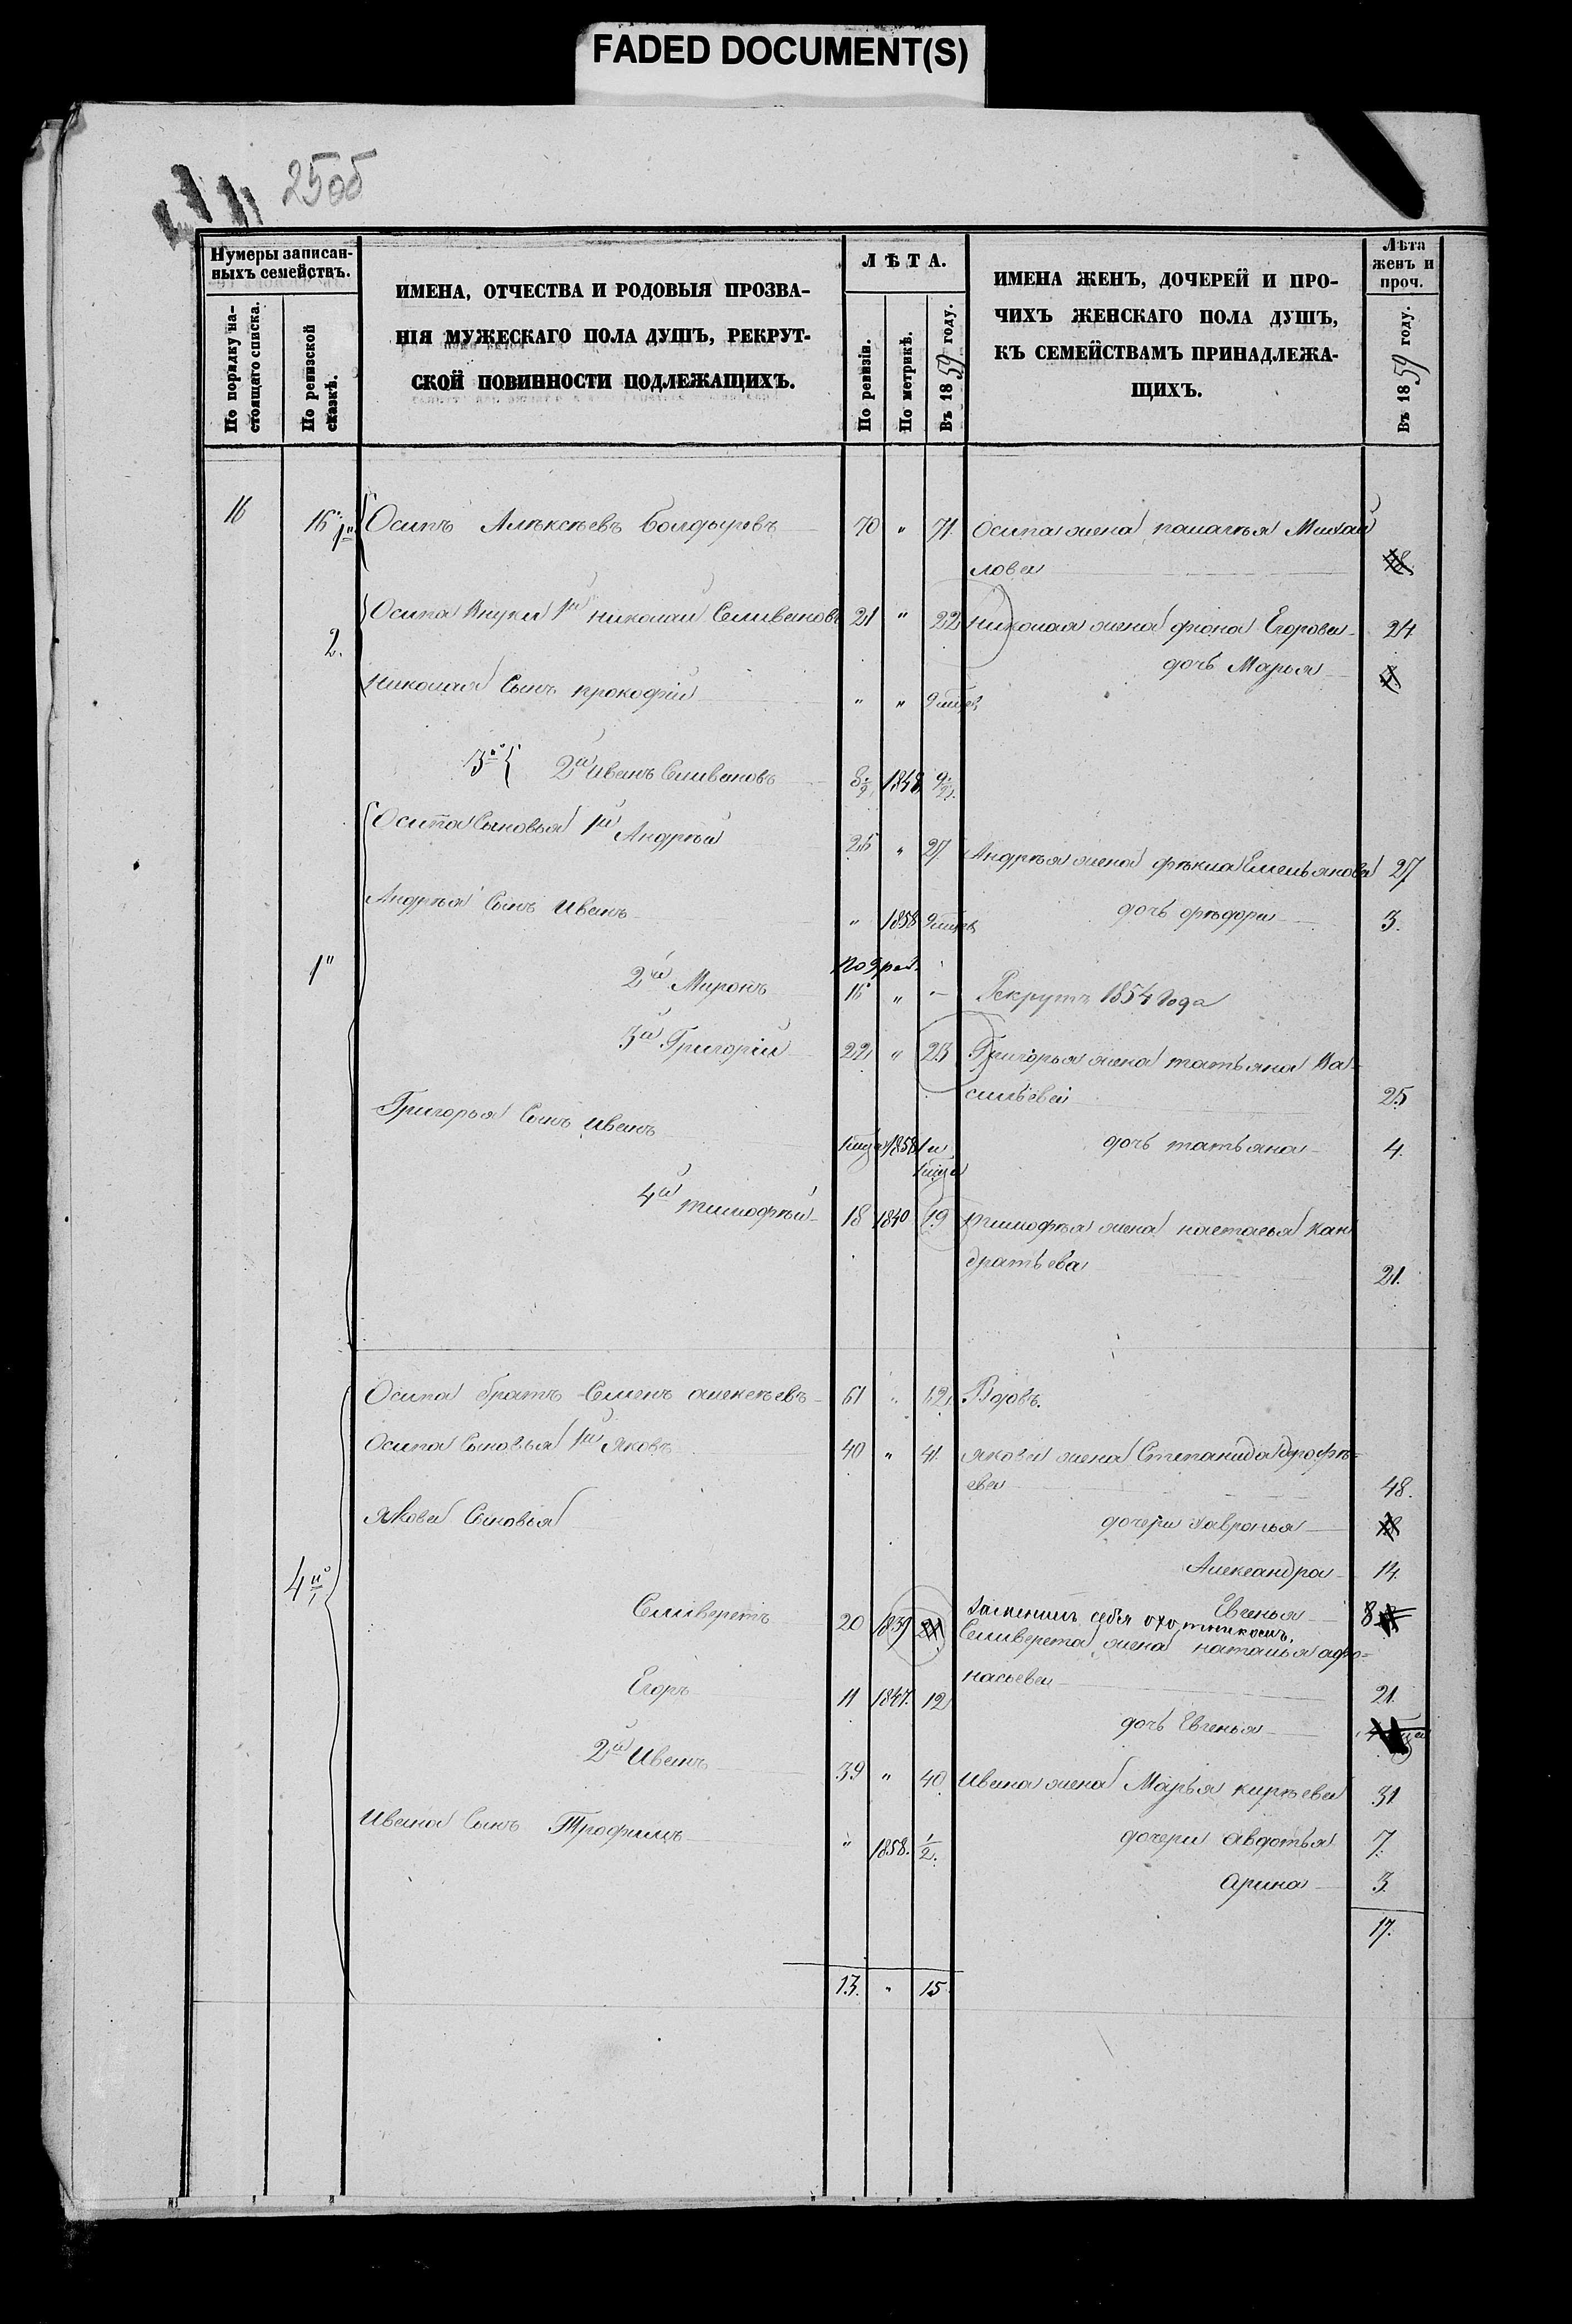 FADED DOCUMENT(S)
25об
Нумеры записан-
ныхъ семействъ.
По порядку на-
стоящаго списка.
По ревизской
сказкѣ.
ИМЕНА, ОТЧЕСТВА И РОДОВЫЯ ПРОЗВА-
НІЯ МУЖЕСКАГО ПОЛА ДУШЪ, РЕКРУТ-
СКОЙ ПОВИННОСТИ ПОДЛЕЖАЩИХЪ.
ЛѢТА.
По ревизіи.
По метрикѣ.
Въ 1859 году.
ИМЕНА ЖЕНЪ, ДОЧЕРЕЙ И ПРО-
ЧИХЪ ЖЕНСКАГО ПОЛА ДУШЪ,
КЪ СЕМЕЙСТВАМЪ ПРИНАДЛЕЖА-
ЩИХЪ.
Лѣта
женъ и
проч.
Въ 1859 году.
16 16 1 Осипъ Алѣксѣевъ Болдыревъ 70 " 71. Осипа жена Михай
лова
2. Осипа Внуки 1й Николай Селивановъ 21 " 22 Николая жена Егорова 24
дочь Марья
Николая Сынъ Прокофій " " 9 мцев
3 2й Иванъ Селивановъ 8 1/2 1848 9 1/2
Осипа Сыновья 1й Андрѣй 26 " 27 Андрѣя жена фѣкла Емельянова 27
Андрѣя Сынъ Иванъ " 1858 9 мцев дочь фѣдора 3.
1" 2й Миронъ 16 " - Рекрутъ 1854 года
3й Григорій 22 " 23 Григорья жена татьяна Ва-
сильева 25
Григорья Сынъ Иванъ 1858 дочь татьяна 4.
4й тимофѣй 18 1840 19 тимофѣя жена настасья Кан
дратьева 21.
Осипа братъ Семенъ алексѣевъ 61 " 62 Вдовъ.
Осипа Сыновья 1й Яковъ 40 " 41. Якова жена Степанида
ева 48.
Якова Сыновья дочери Хавронья
Александра 14
4 Евгенья 8
Селиверстъ 20 1839 21 Заменилъ себя охотникомъ.
Селиверста жена наталья афо-
насьева 21.
Егоръ 11 1847. 12
дочь Евгенья
2й Иванъ 39 " 40 Ивана жена Марья кирѣева 31
Ивана Сынъ Трофимъ " 1858. 1/2. дочери Авдотья 7.
Арина 3.
17.
13. " 15